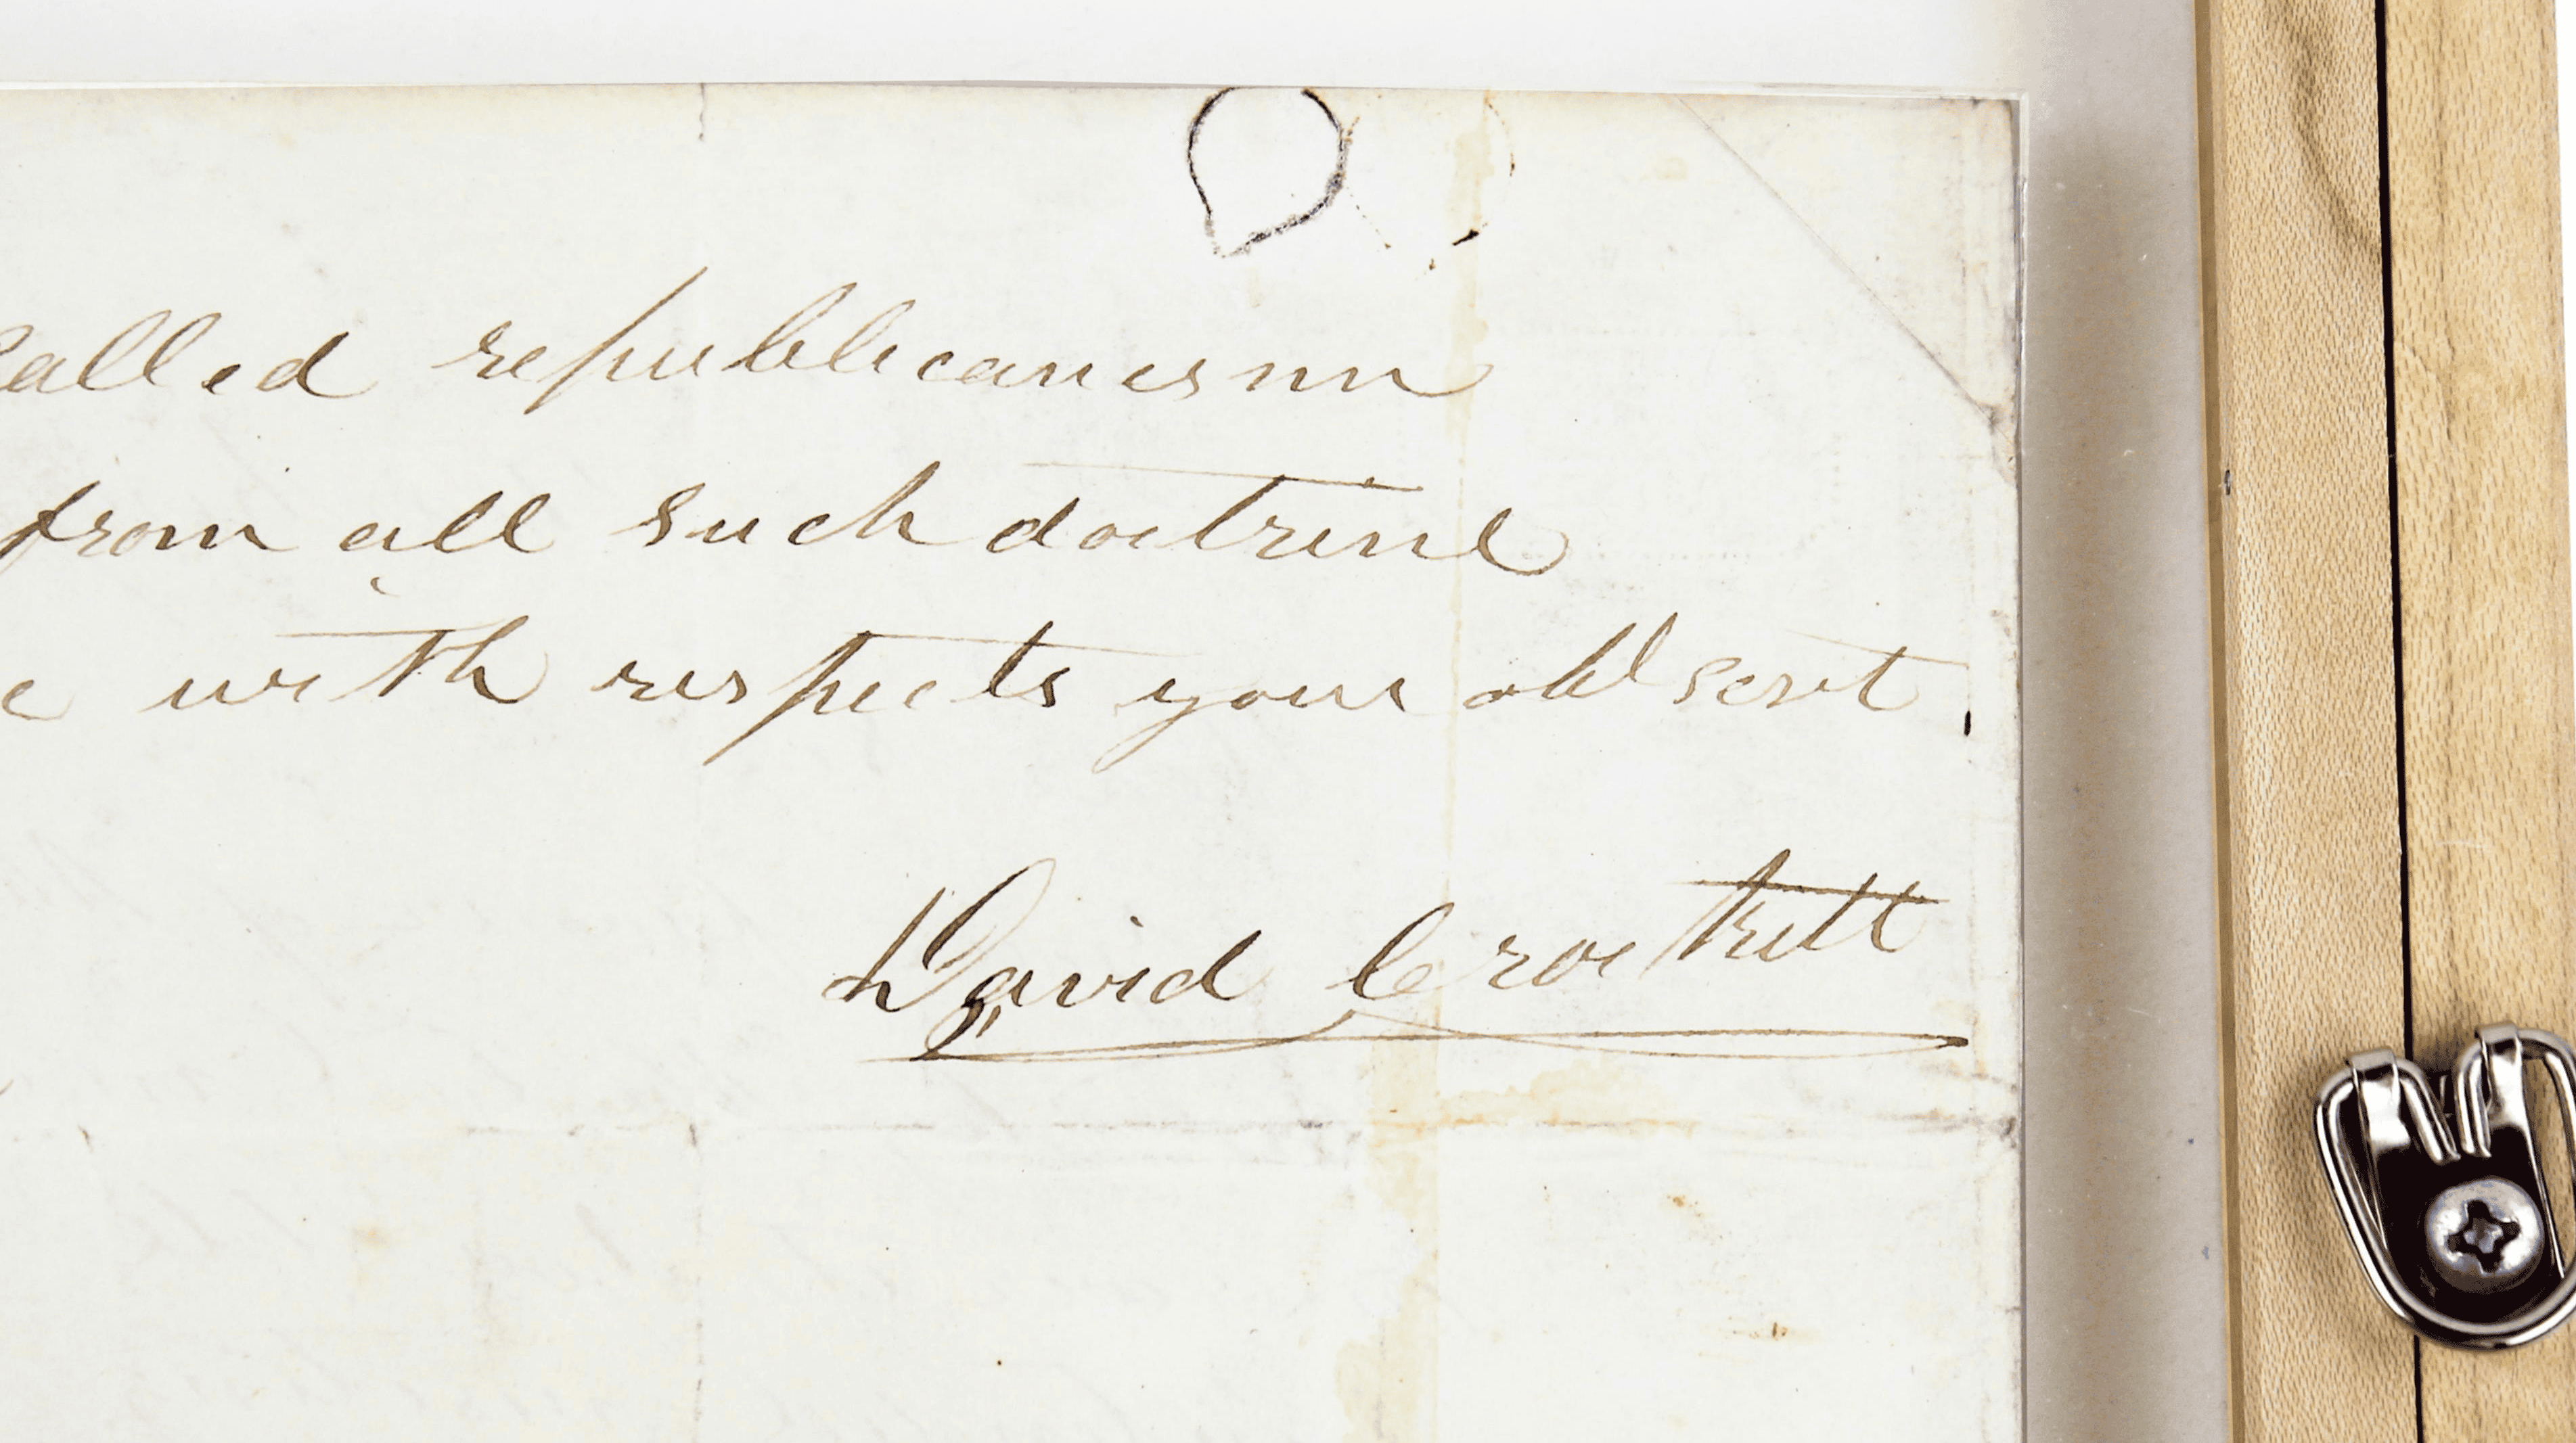 Called republicanism
from all such doctrine
with respects your obt servt
David Crockett